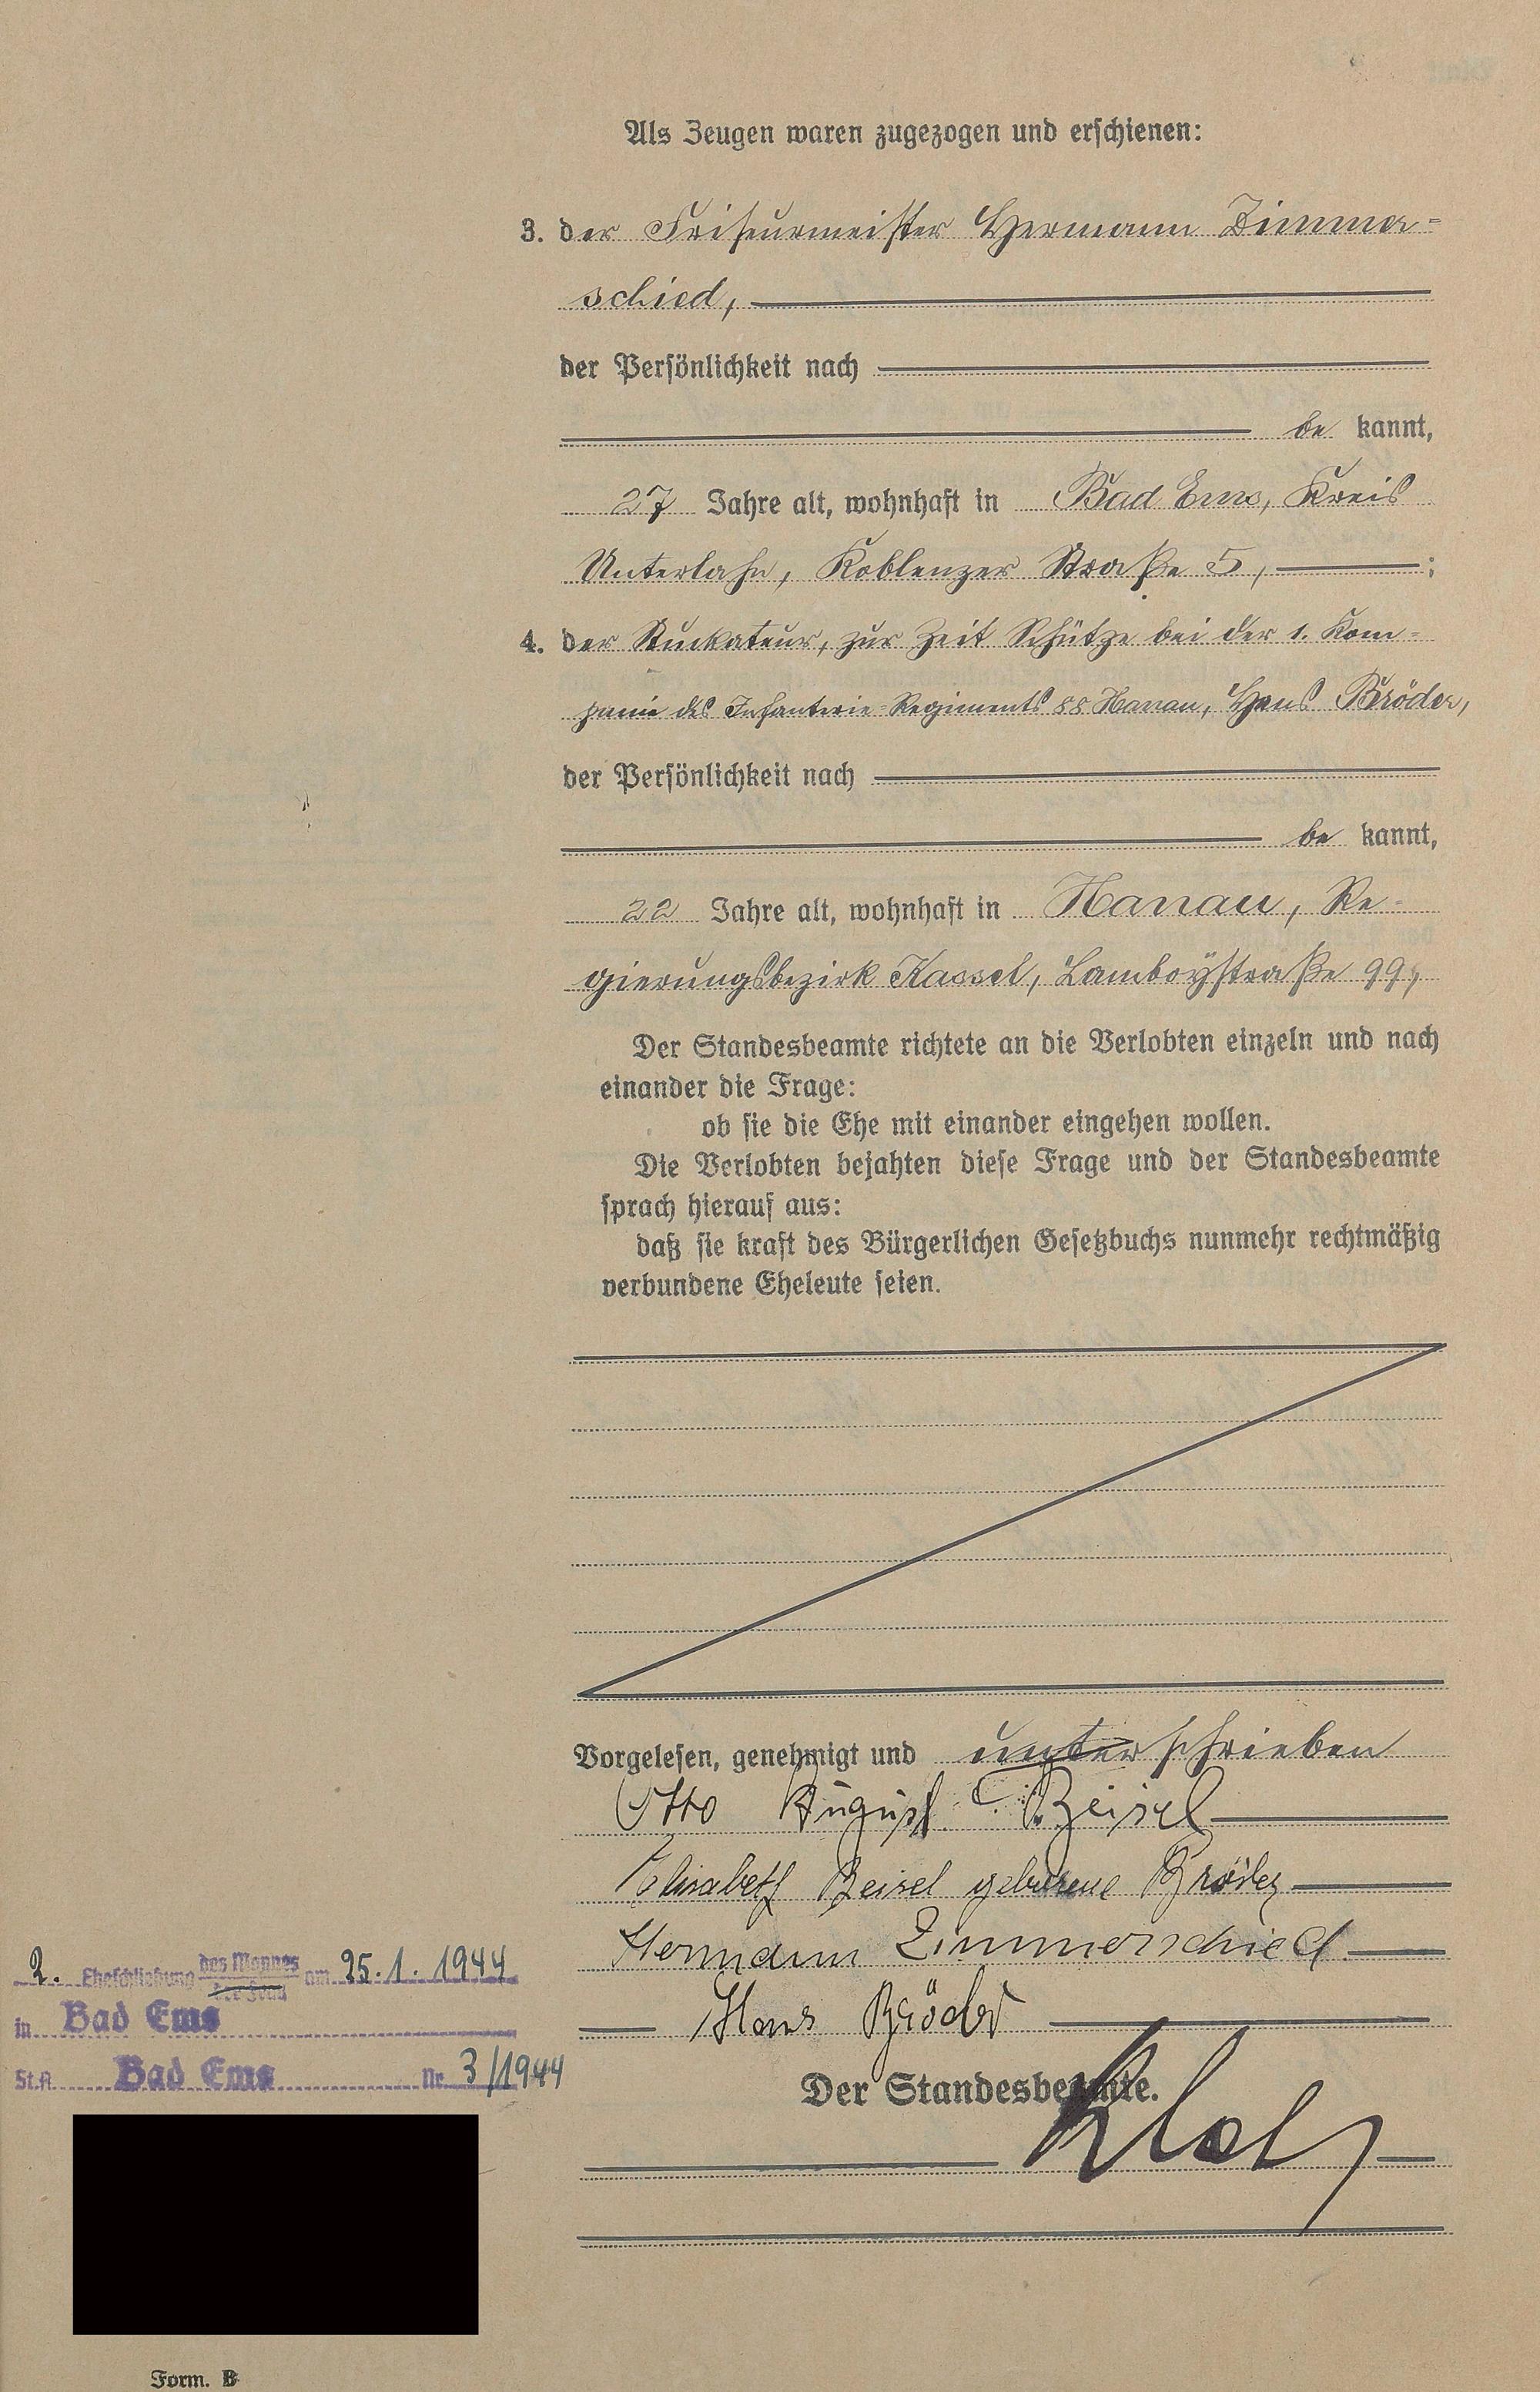 Als Zeugen waren zugezogen und erschienen:
3. der Friseurmeister Hermann Zimmer-
schied,
der Persönlichkeit nach
be kannt,
27 Jahre alt, wohnhaft in Bad Ems, Kreis
Unterlahn, Koblenzer Straße 5, ;
4. der Stuckateur, zur Zeit Schütze bei der 1. Kom-
panie des Infanterie-Regiments 88 Hanau, Hans Bröder,
der Persönlichkeit nach
be kannt,
22 Jahre alt, wohnhaft in Hanau, Re-
gierungsbezirk Kassel, Lamboystraße 99,
Der Standesbeamte richtete an die Verlobten einzeln und nach
einander die Frage:
ob sie die Ehe mit einander eingehen wollen.
Die Verlobten bejahten diese Frage und der Standesbeamte
sprach hierauf aus:
daß sie kraft des Bürgerlichen Gesetzbuchs nunmehr rechtmäßig
verbundene Eheleute seien.
Vorgelesen, genehmigt und unterschrieben
Otto August Beisel
Elisabeth Beisel geborene Bröder
Hermann Zimmerschied
Hans Bröder
Der Standesbeamte.
2. Eheschließung des Mannes der Frau am 25.1.1944
in Bad Ems
St.A. Bad Ems Nr. 3/1944
Form. B